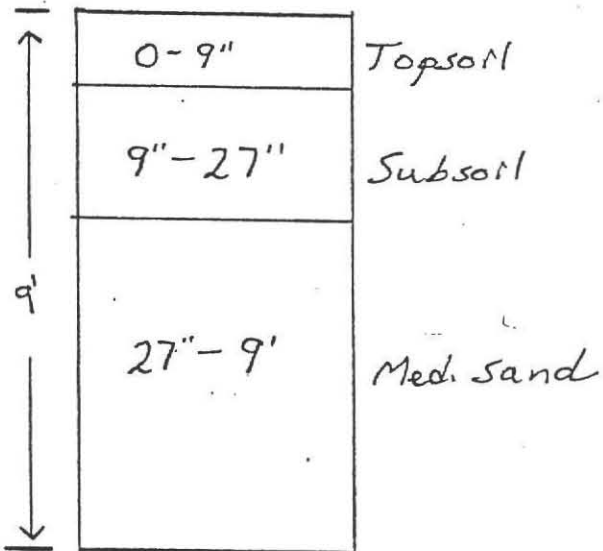 0-9" Topsoil
9"-27" Subsoil
9'
27"-9' Med. Sand